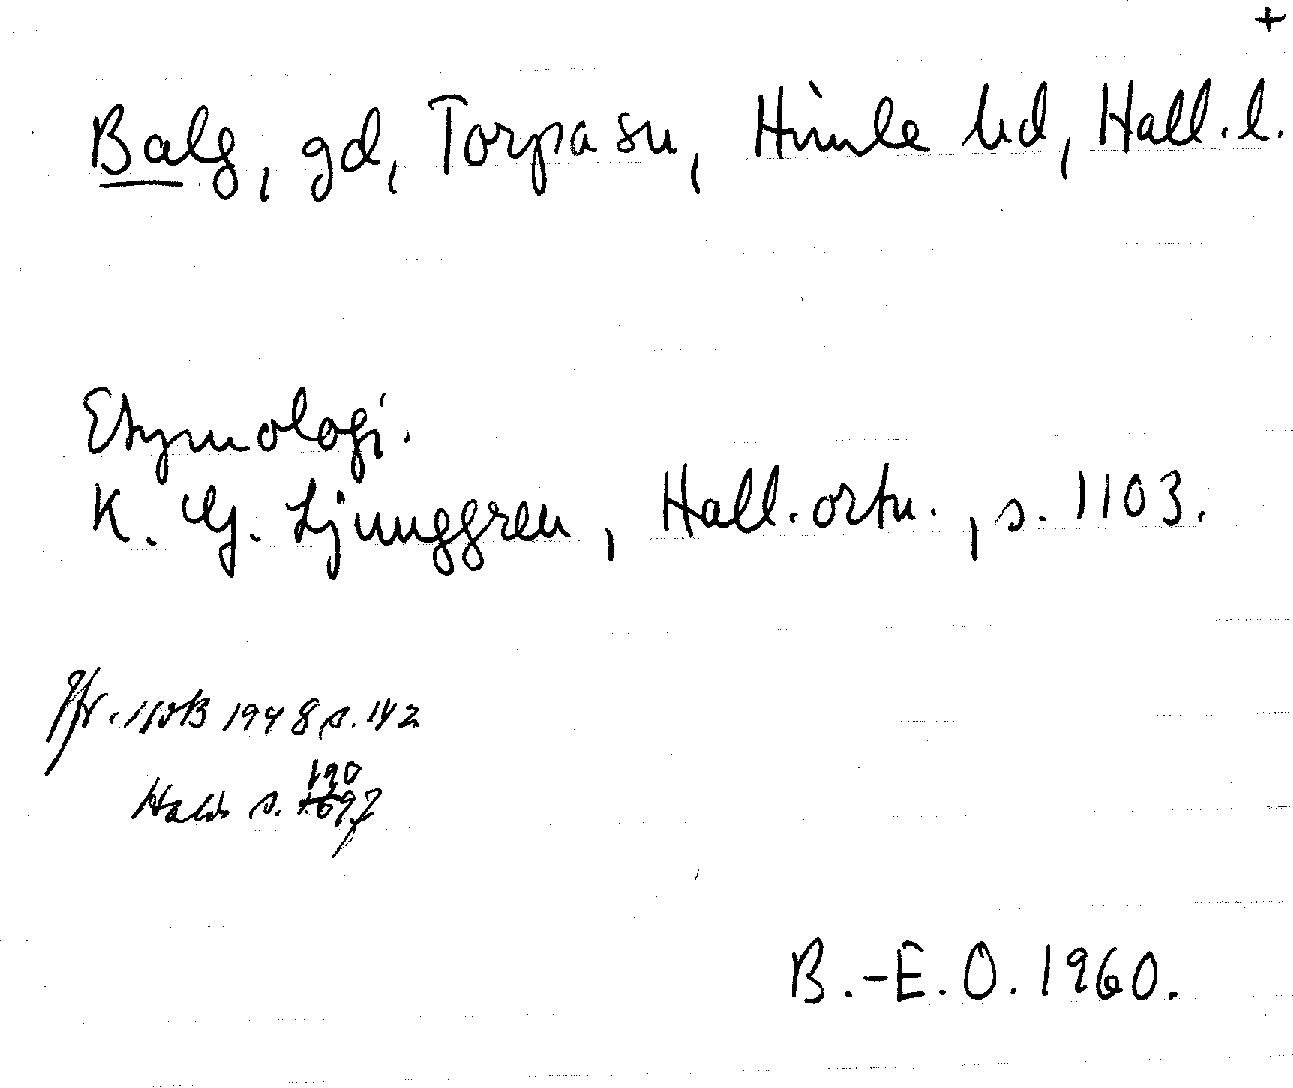 +
Balg, gd, Torpa sn, Himle hd, Hall. l.
Etymologi.
K. G. Ljunggren, Hall. ortn., s. 1103.
Jfr. NoB 1948 s. 142
Hald s. 190
B.-E. O. 1960.